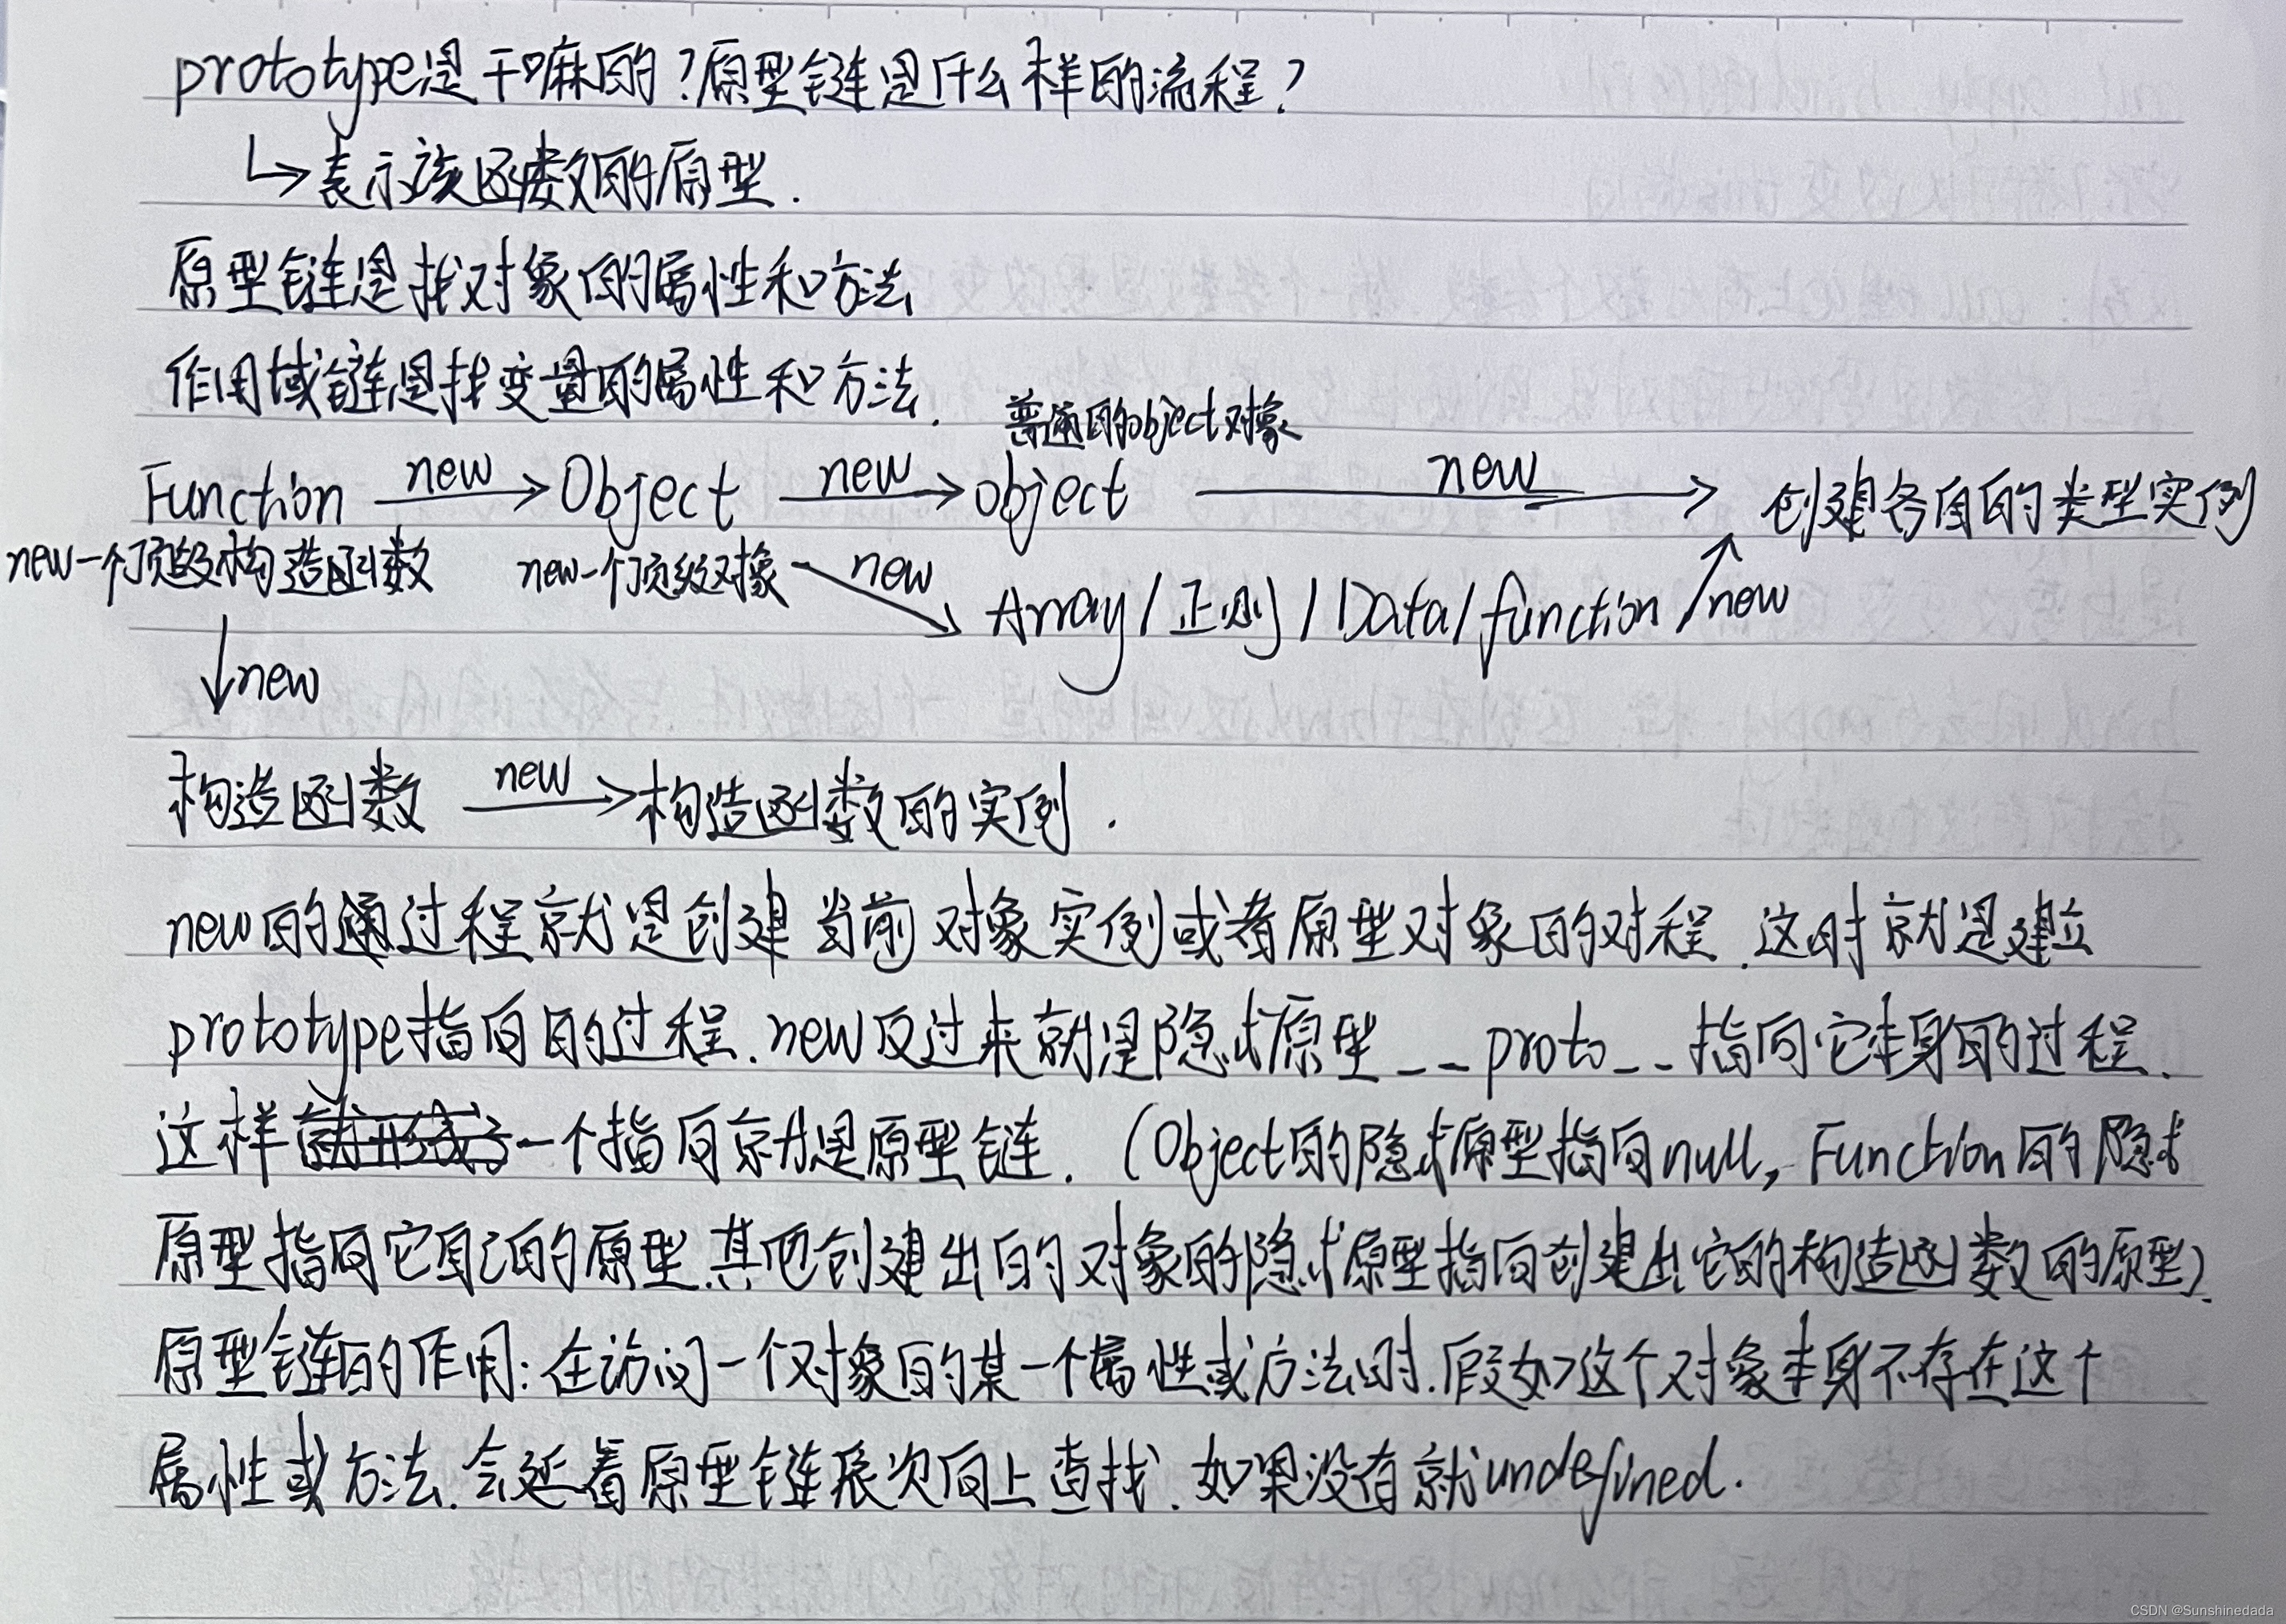 prototype是干嘛的?原型链是什么样的流程?
表示该函数的原型.
原型链是找对象的属性和方法
作用域链是找变量的属性和方法.
普通的object对象
Function new Object new object new 创建各自的类型实例
new一个顶级构造函数 new一个顶级对象 new Array/正则/Data/function new
new
构造函数 new 构造函数的实例.
new的通过程就是创建当前对象实例或者原型对象的对程.这时就是建立
prototype指向的过程.new反过来就是隐式原型__proto__指向它本身的过程.
这样就形成了一个指向就是原型链.(Object的隐式原型指向null,Function的隐式
原型指向它自己的原型.其他创建出的对象的隐式原型指向创建出它的构造函数的原型).
原型链的作用:在访问一个对象的某一个属性或方法时.假如这个对象本身不存在这个
属性或方法.会延着原型链依次向上查找.如果没有就undefined.
CSDN @Sunshinedada